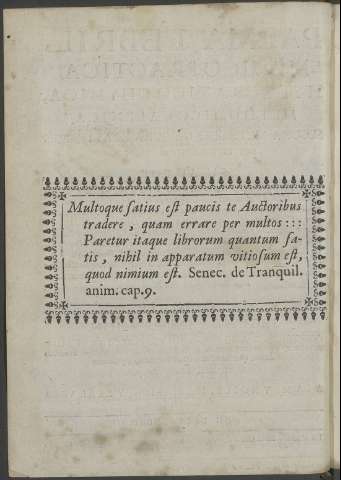 Multoque ſatius eſt paucis te Auctoribus
tradere, quam errare per multos :::
Paretur itaque librorum quantum ſa-
tis, nihil in apparatum vitioſum eſt,
quod nimium eſt. Senec. de Tranquil.
anim. cap. 9.